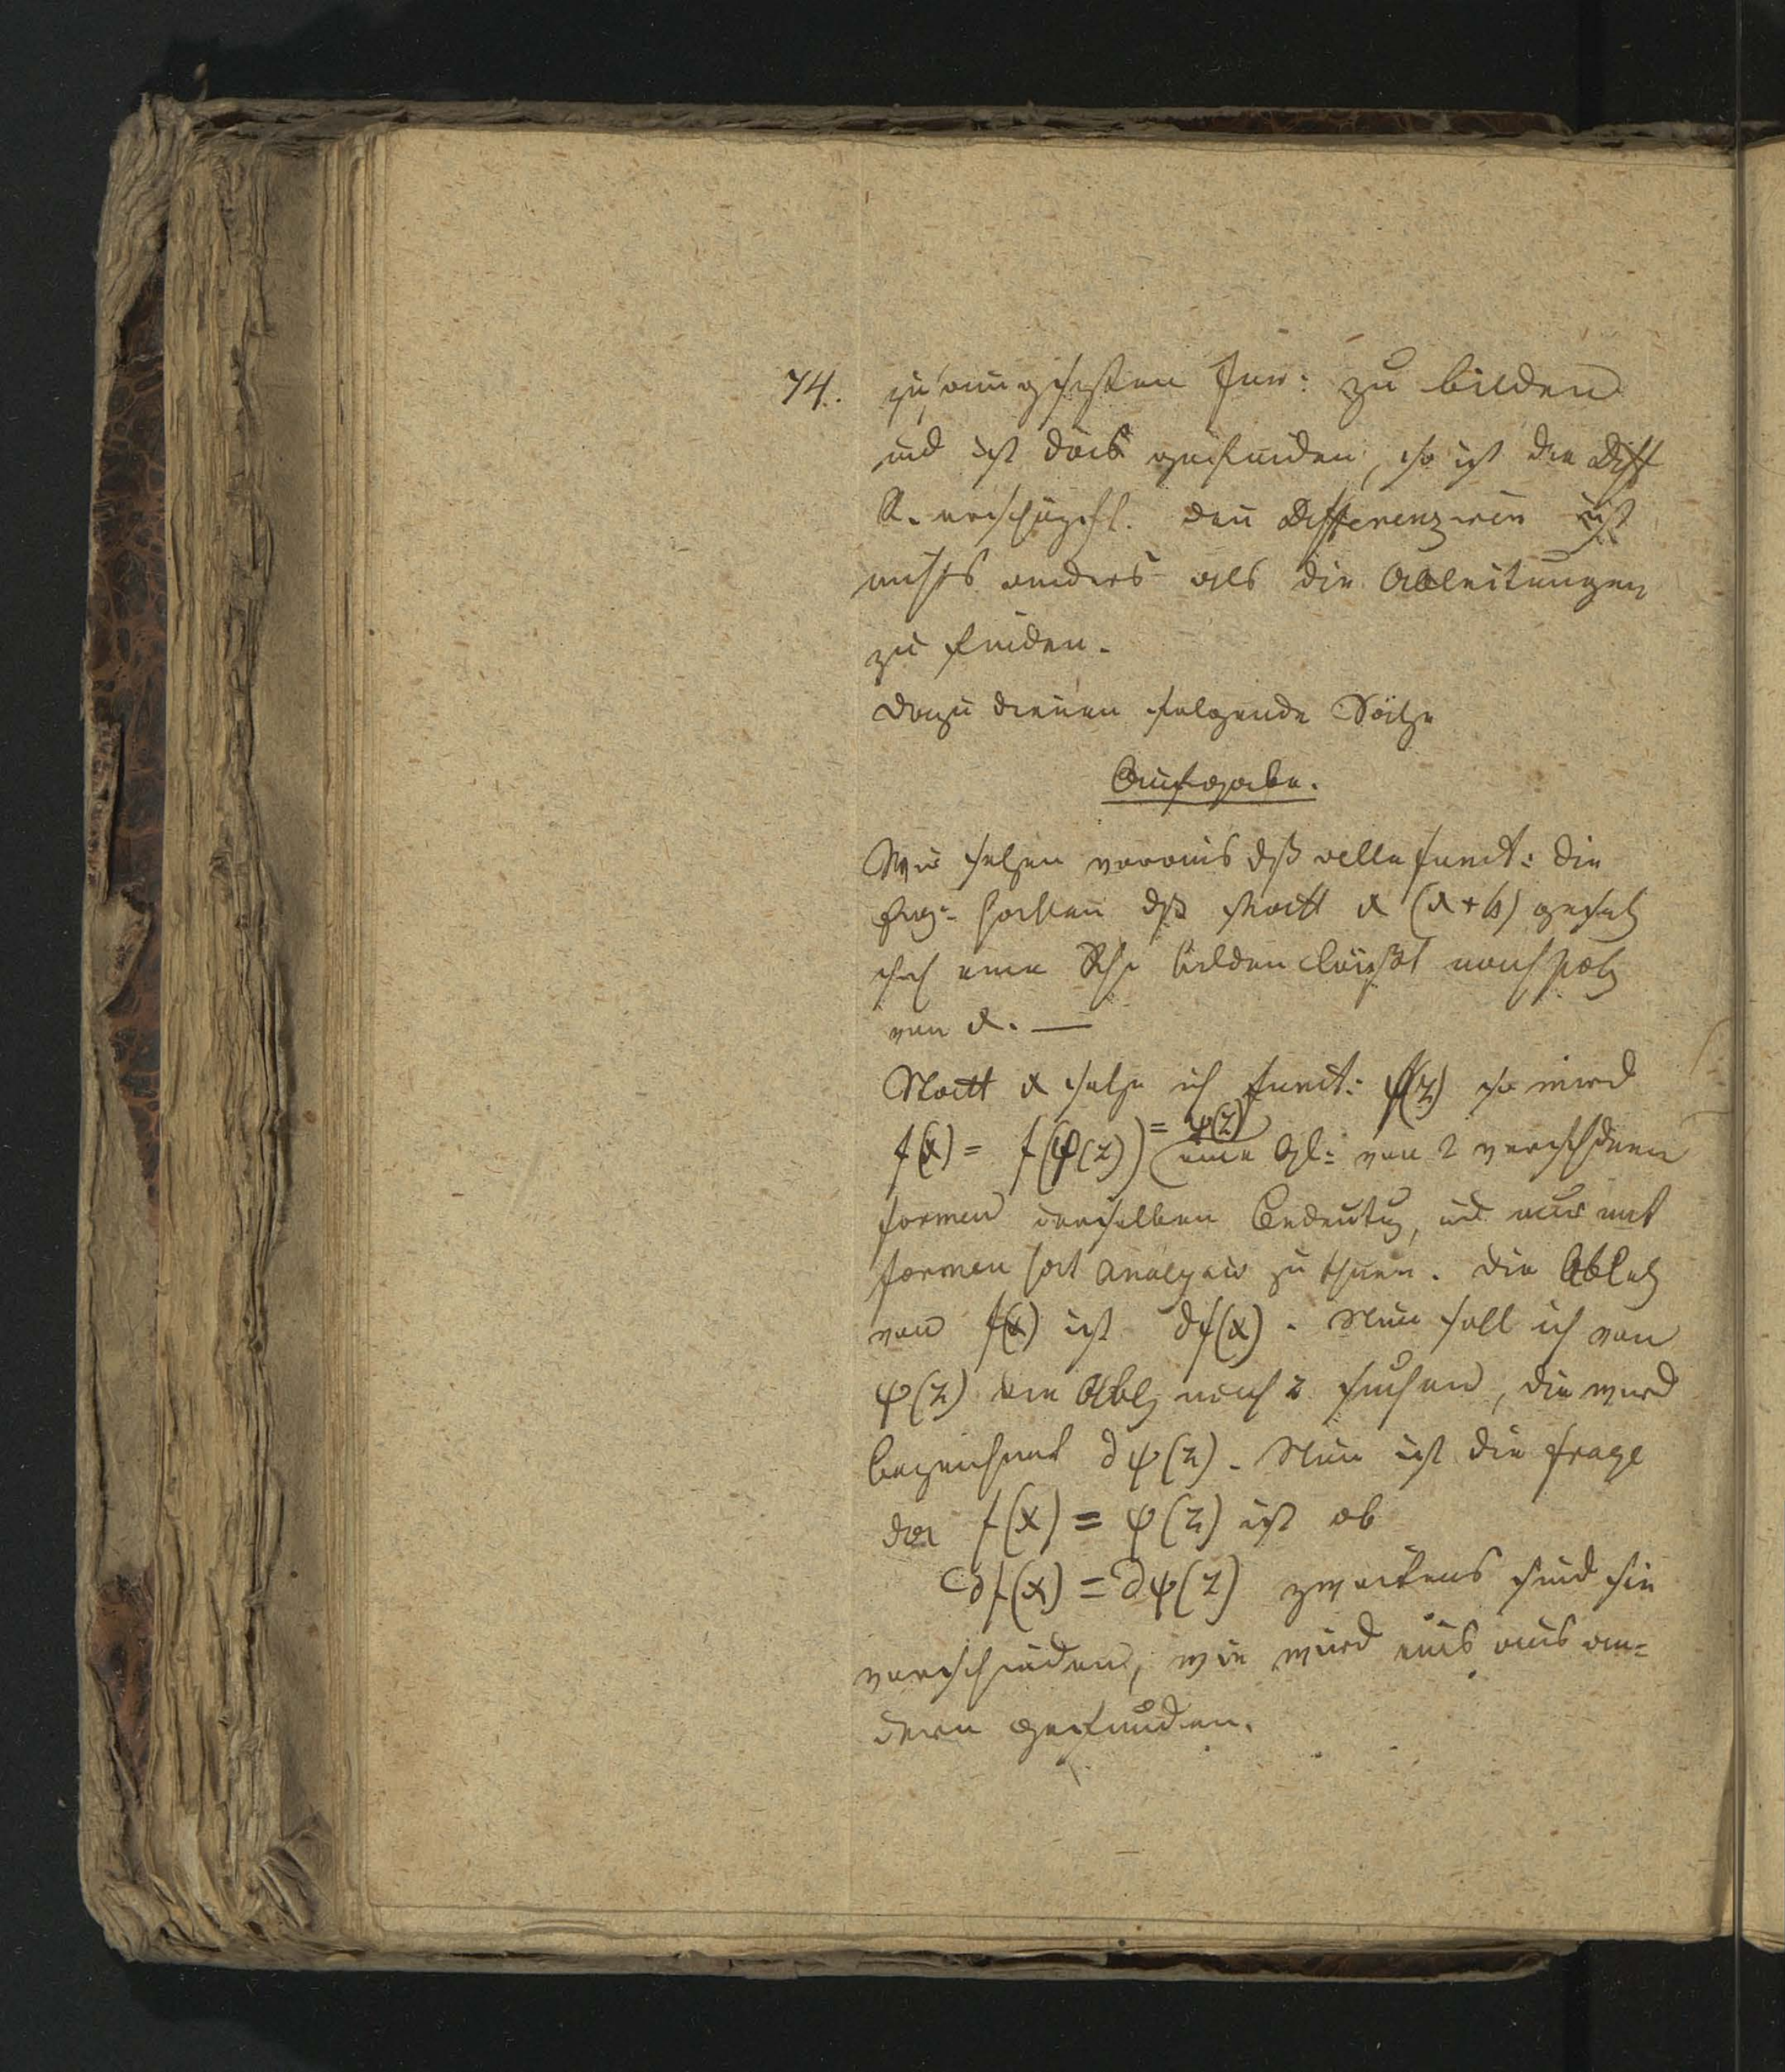 74. zusammengesetzten Fun: zu bilden
und ist das gefunden, so ist die Diff
R. erschöpft. denn Differenziren ist
nichts anders als die Ableitungen
zu finden.
Dazu dienen folgende Sätze
Aufgabe.
Wir setzen voraus dß alle funct: die
Eig: hatten dß statt x (x+h) gesetz
sich eine Rhe bilden läßt nach Potz
von x. —
Statt x setze ich funct: φ(z) so wird
f(x) = f(φ(z)) = ψ(z) eine Gl: von 2 verschdenen
formen derselben Bedeutg, und nur mit
formen hat Analysis zu thuen. die Abletg
von f(x) ist ∂f(x). Nun soll ich von
ψ(z) die Ablg nach z suchen, die wird
bezeichnet ∂ψ(z). Nun ist die frage
da f(x) = ψ(z) ist ob
∂f(x) = ∂ψ(z) zweitens sind sie
verschieden, wie wird eins aus an=
dern gefunden.